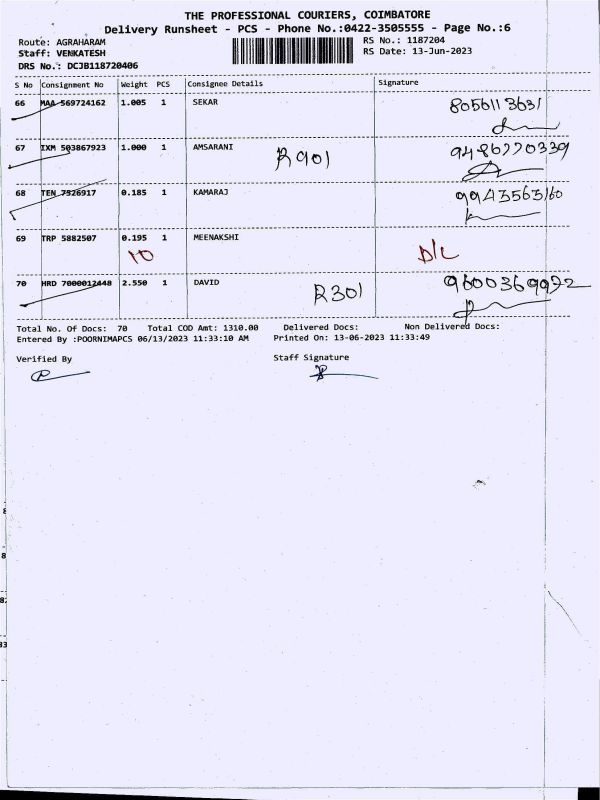 THE PROFESSIONAL COURIERS, COIMBATORE
Delivery Runsheet - PCS - Phone No.:0422-3505555 - Page No.:6
Route: AGRAHARAM
Staff: VENKATESH
DRS No.: DCJB118720406
RS No.: 1187204
RS Date: 13-Jun-2023
S No Consignment No Weight PCS Consignee Details Signature
66 MAA 569724162 1.005 1 SEKAR 8056113631
67 IXM 503867923 1.000 1 AMSARANI R901 9486770339
68 TEN 7526917 0.185 1 KAMARAJ 9943563160
69 TRP 5882507 0.195 1 MEENAKSHI D/L
10
70 HRD 7000012448 2.550 1 DAVID R301 9600369972
Total No. Of Docs: 70 Total COD Amt: 1310.00 Delivered Docs: Non Delivered Docs:
Entered By :POORNIMAPCS 06/13/2023 11:33:10 AM Printed On: 13-06-2023 11:33:49
Verified By Staff Signature